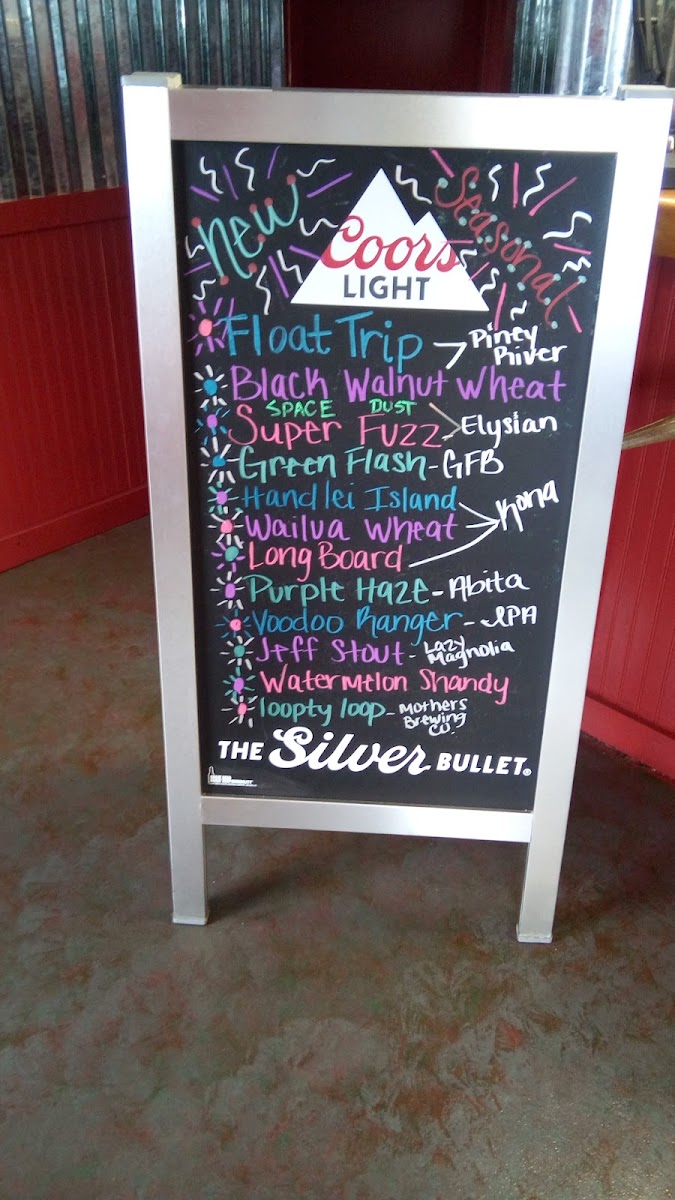 new
Seasonal
Coors
LIGHT
Float Trip
Piney
River
Black Walnut Wheat
SPACE DUST
Super Fuzz
Elysian
Green Flash - GFB
Handlei Island
Wailua Wheat
Kona
Long Board
Purple Haze - Abita
Voodoo Ranger - IPA
Jeff Stout - Lazy
Magnolia
Watermelon Shandy
loopty loop - Mothers
Brewing
Co.
THE Silver BULLET®